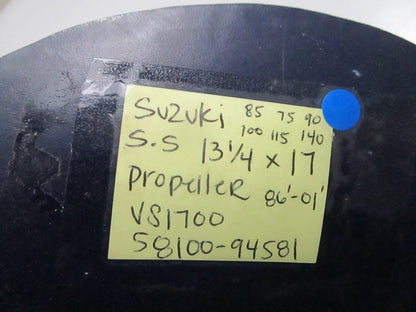 Suzuki 85 75 90
100 115 140
S.S 13 1/4 x 17
Propeller 86'-01'
VS1700
58100-94581